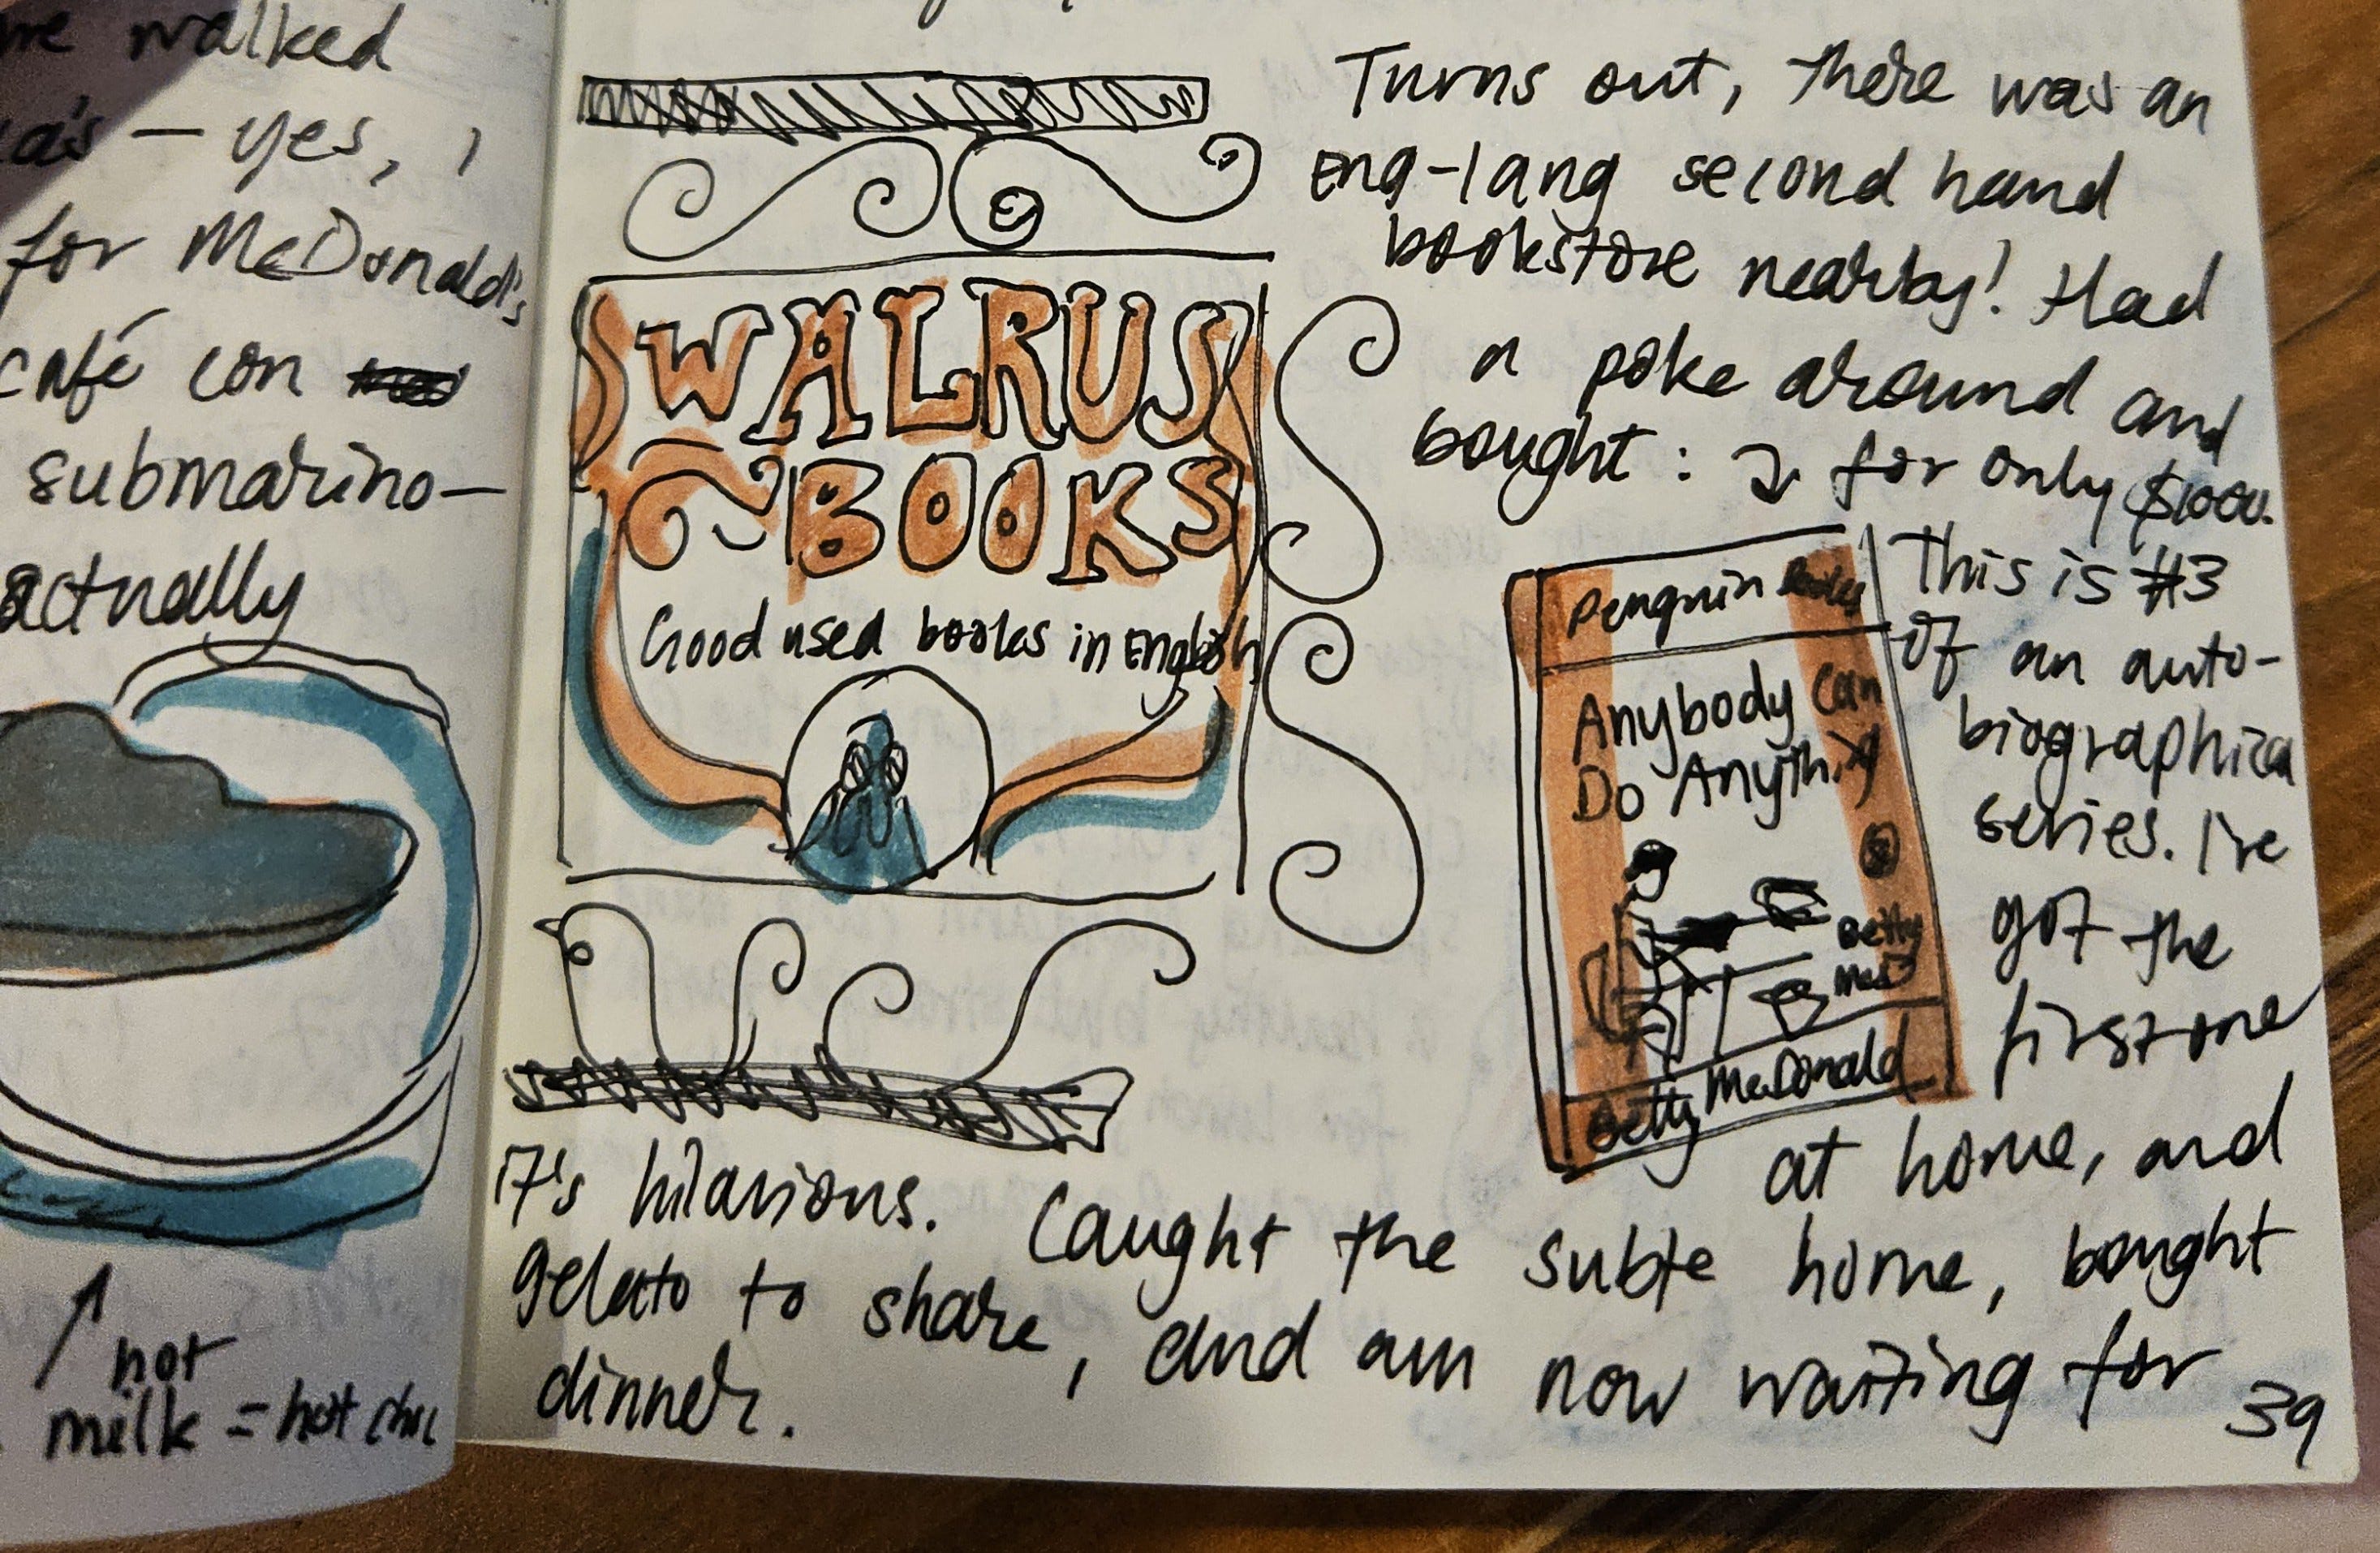 walked
– yes, I
for McDonald's
café con
submarino –
actually
hot
milk = hot choc
WALRUS
BOOKS
Good used books in English
Turns out, there was an
Eng-lang second hand
bookstore nearby! Had
a poke around and
bought: for only $1000.
Penguin Books
Anybody Can
Do Anything
Betty
MacD
Betty McDonald
This is #3
of an auto-
biographica
series. I've
got the
first one
at home, and
it's hilarious. Caught the subte home, bought
gelato to share, and am now waiting for
dinner.
39